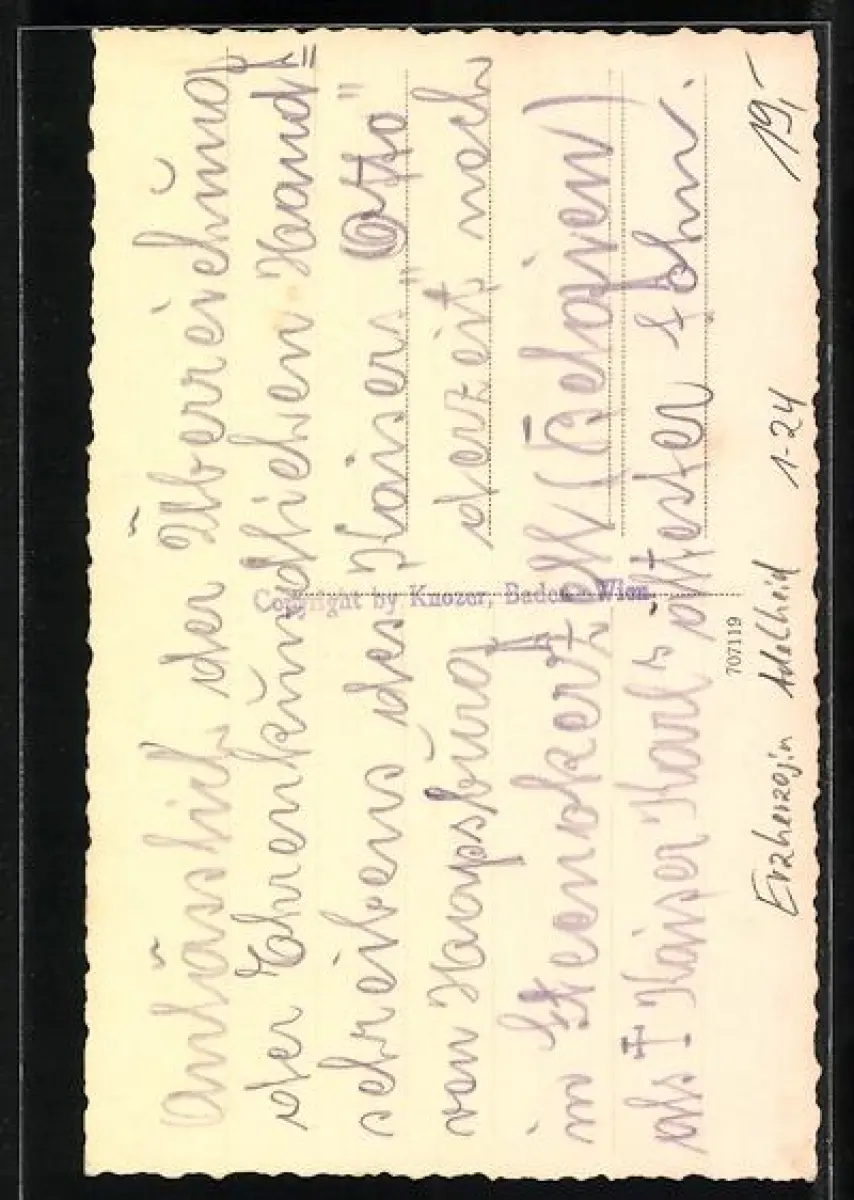 Anlässlich der Überreichung
der Ehrenkündlichen Hand=
schreibens des Kaisers "Otto"
von Hapsburg derzeit noch
in Steenokerz (Belgien)
als † Kaiser Karl's ältester Sohn.
Copyright by Knozer, Baden - Wien.
707119
Erzherzogin Adelheid 1-24 19,-